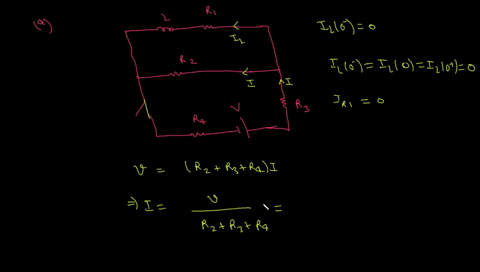 (a)
L R1
IL
R2
I I
R3
R4 V
IL(0⁻) = 0
IL(0⁻) = IL(0) = IL(0⁺) = 0
IR1 = 0
V = (R2 + R3 + R4) I
⇒ I = V / (R2 + R3 + R4) =